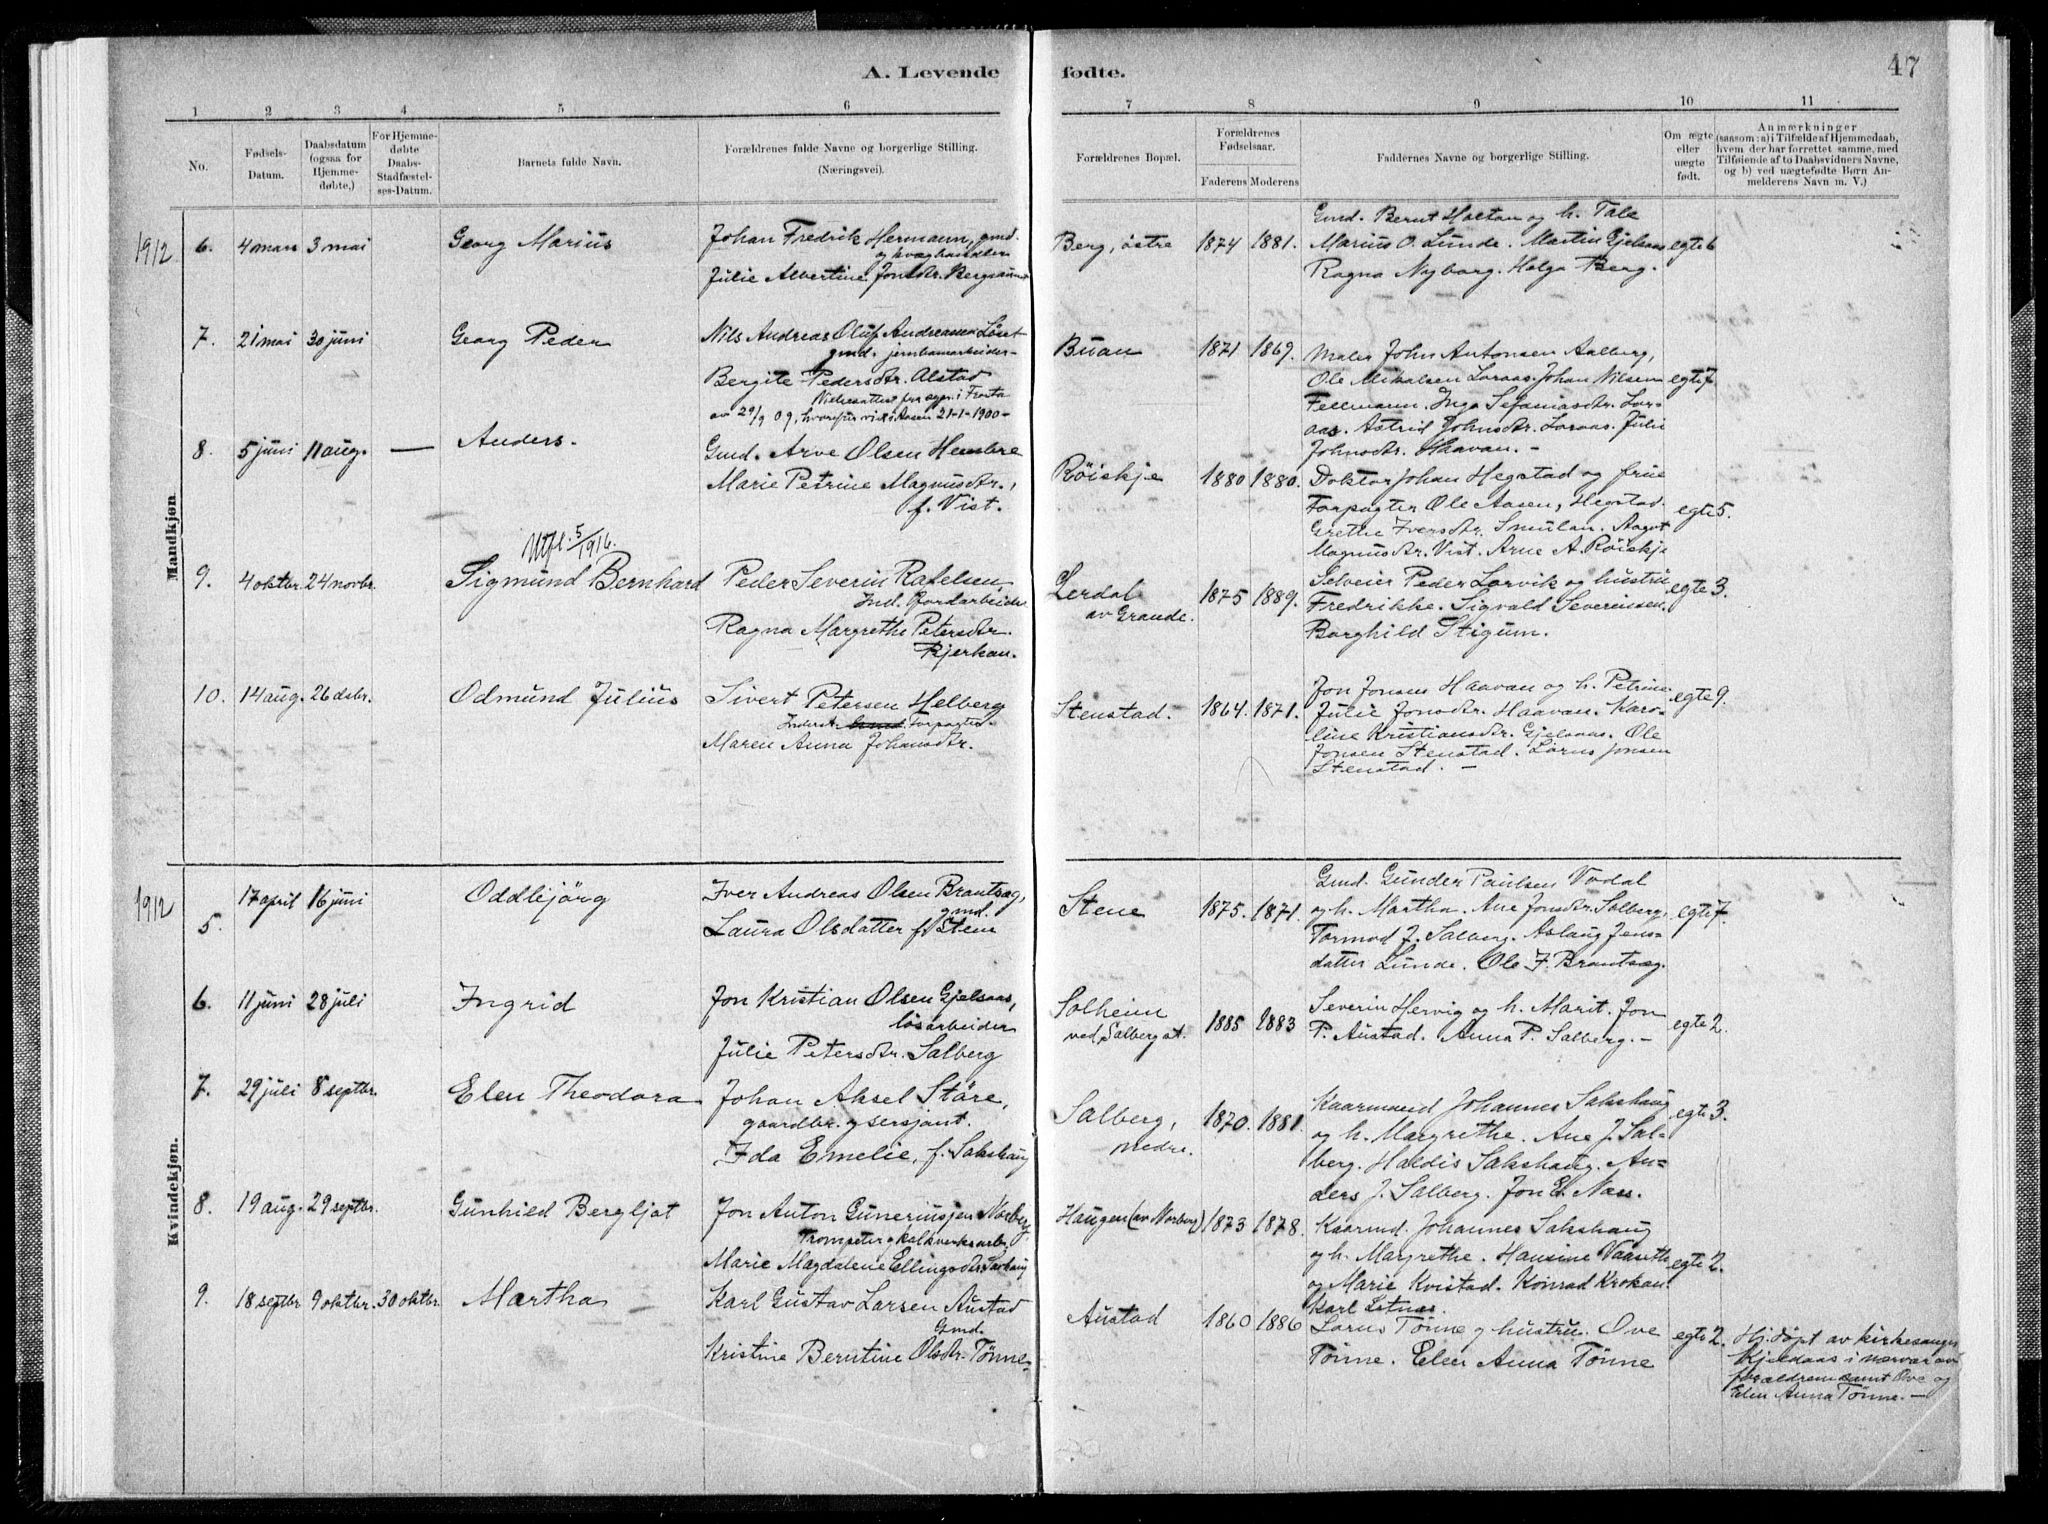 A. Levende fødte.
47
1 2 3 4 5 6 7 8 9 10 11
No.
Fødsels-
Datum.
Daabsdatum
(ogsaa for
Hjemme-
døbte,)
For Hjemme-
døbte
Daabs-
Stadfæstel-
ses-Datum.
Barnets fulde Navn.
Forældrenes fulde Navne og borgerlige Stilling.
(Næringsvei).
Forældrenes Bopæl.
Forældrenes
Fødselsaar.
Faderens Moderens
Faddernes Navne og borgerlige Stilling.
Om ægte
eller
uægte
født.
Anmærkninger
(saasom: a) i Tilfælde af Hjemmedaab,
hvem der har forrettet samme, med
Tilføiende af to Daabsvidners Navne,
og b) ved uægtefødte Børn An-
melderens Navn m. V.)
Mandkjøn
1912
6. 4 mars 3 mai
Georg Marius
Johan Fredrik Hermann, gmd.
og kvæghandler
Julie Albertine Jonsdtr. Bergsaunet
Berg, østre
1874 1881.
Gmd. Bernt Holtan og h. Tale
Marius O. Lunde. Martin Gjelsaas
Ragna Nyborg. Helga Berg.
egte 6
7. 21 mai 30 juni
Georg Peder
Nils Andreas Oluf Andreassen Løset
gmd. jernbanarbeider-
Bergite Pedersdtr. Alstad
Vielsesattest fra sogn. i Frosta
av 29/9 09, hvorefter vied i Aasen 21-1-1900-
Buan
1871 1869.
Maler John Antonsen Aalberg,
Ole Mikalsen Loraas. Johan Nilsen
Fellmann. Inga Sefaniasdtr. Lor-
aas. Astrid Johnsdtr. Loraas. Julie
Johnsdtr. Haavan. -
egte 7
8. 5 juni 11 aug. —
Anders.
Gmd. Arve Olsen Hembre
Marie Petrine Magnusdtr.,
f. Vist.
Røiskje
1880 1880.
Doktor Johan Hegstad og frue
Forpagter Ole Aasen, Hegstad.
Grethe Iversdtr. Smulan. Aagot
Magnusdtr. Vist. Arne A. Røiskje
egte 5.
Utfl. 5/1916.
9. 4 oktbr. 24 novbr.
Sigmund Bernhard
Peder Severin Rafelsen
Ind. Jordarbeider
Ragna Margrethe Petersdtr.
Bjerkan.
Lerdal
av Grande.
1875 1889.
Selveier Peder Lorvik og hustru
Fredrikke. Sigvald Severinsen.
Borghild Stigum.
egte 3.
10. 14 aug. 26 dsbr.
Odmund Julius
Sivert Petersen Helberg
Inderst. Forpagter.
Maren Anna Johansdtr.
Stenstad.
1864. 1871.
Jon Jonsen Haavan og h. Petrine.
Julie Jonsdtr. Haavan. Karo-
line Kristiansdtr. Gjelsaas. Ole
Jonsen Stenstad. Lorns Jonsen
Stenstad. -
egte 9.
Kvindekjøn.
1912
5. 17 april 16 juni
Oddbjörg
Iver Andreas Olsen Brautsæg,
gmd.
Laura Olsdatter f. Stene
Stene
1875. 1871.
Gmd. Gunder Paulsen Vodal
og h. Martha. Ane Jonsdtr. Salberg,
Tormod J. Salberg. Aslaug Jens-
datter Lunde. Ole I. Brautsæg.
egte 7.
6. 11 juni 28 juli
Ingrid
Jon Kristian Olsen Gjelsaas,
løsarbeider
Julie Petersdtr. Salberg
Solheim
ved Salberg st.
1885 1883
Severin Hervig og h. Marit. Jon
P. Austad. Anna P. Salberg. -
egte 2.
7. 29 juli 8 septbr.
Elen Theodora
Johan Aksel Støre,
gaardbr. og sersjant.
Ida Emelie, f. Sakshaug
Salberg,
nedre.
1870. 1881.
Kaarmand Johannes Sakshaug
og h. Margrethe. Ane J. Sal-
berg. Haldis Sakshaug. An-
ders J. Salberg. Jon E. Næss.
egte 3.
8. 19 aug. 29 septbr.
Gunhild Bergljot
Jon Anton Guneriussen Norberg,
Trompeter og kalkverksarb.
Marie Magdalene Ellingsdtr. Saxhaug
Haugen (av Norberg)
1873 1878.
Kaarmd. Johannes Sakshaug
og h. Margrethe. Hansine Vaaseth
og Marie Kvistad. Konrad Krokan.
Karl Letnes.
egte 2.
9. 18 septbr 9 oktbr. 30 oktbr.
Martha
Karl Gustav Larsen Austad
Gmd.
Kristine Berntine Olsdtr. Tønne.
Austad
1860 1886
Lorns Tønne og hustru. Ove
Tønne. Elen Anna Tønne
egte 2.
Hj.døpt av kirkesanger
Kjeldaas i nærvær av
forældrene samt Ove og
Elen Anna Tønne. -